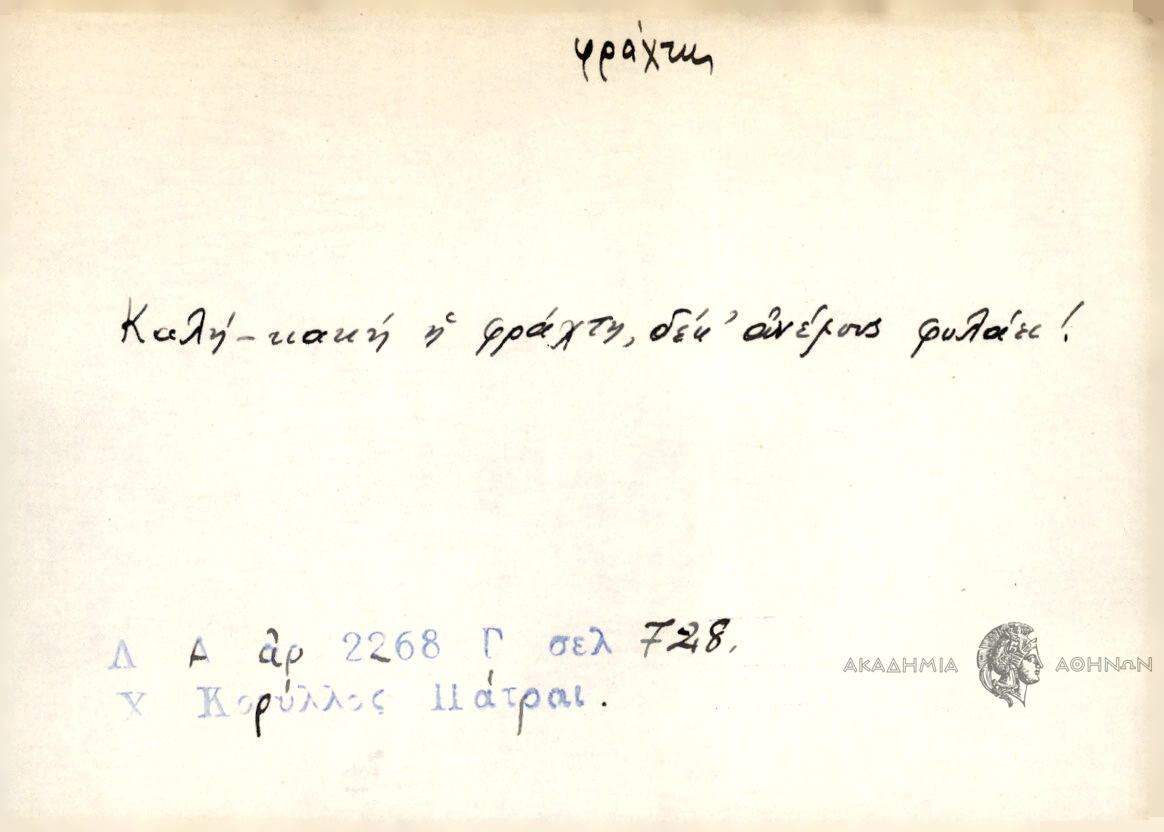 φράχτη
Καλή-κακή ἡ φράχτη, δέκ' ἀνέμους φυλάει!
Λ Α ἀρ 2268 Γ σελ 728.
Χ Κορύλλος Πάτραι.
ΑΚΑΔΗΜΙΑ ΑΘΗΝΩΝ